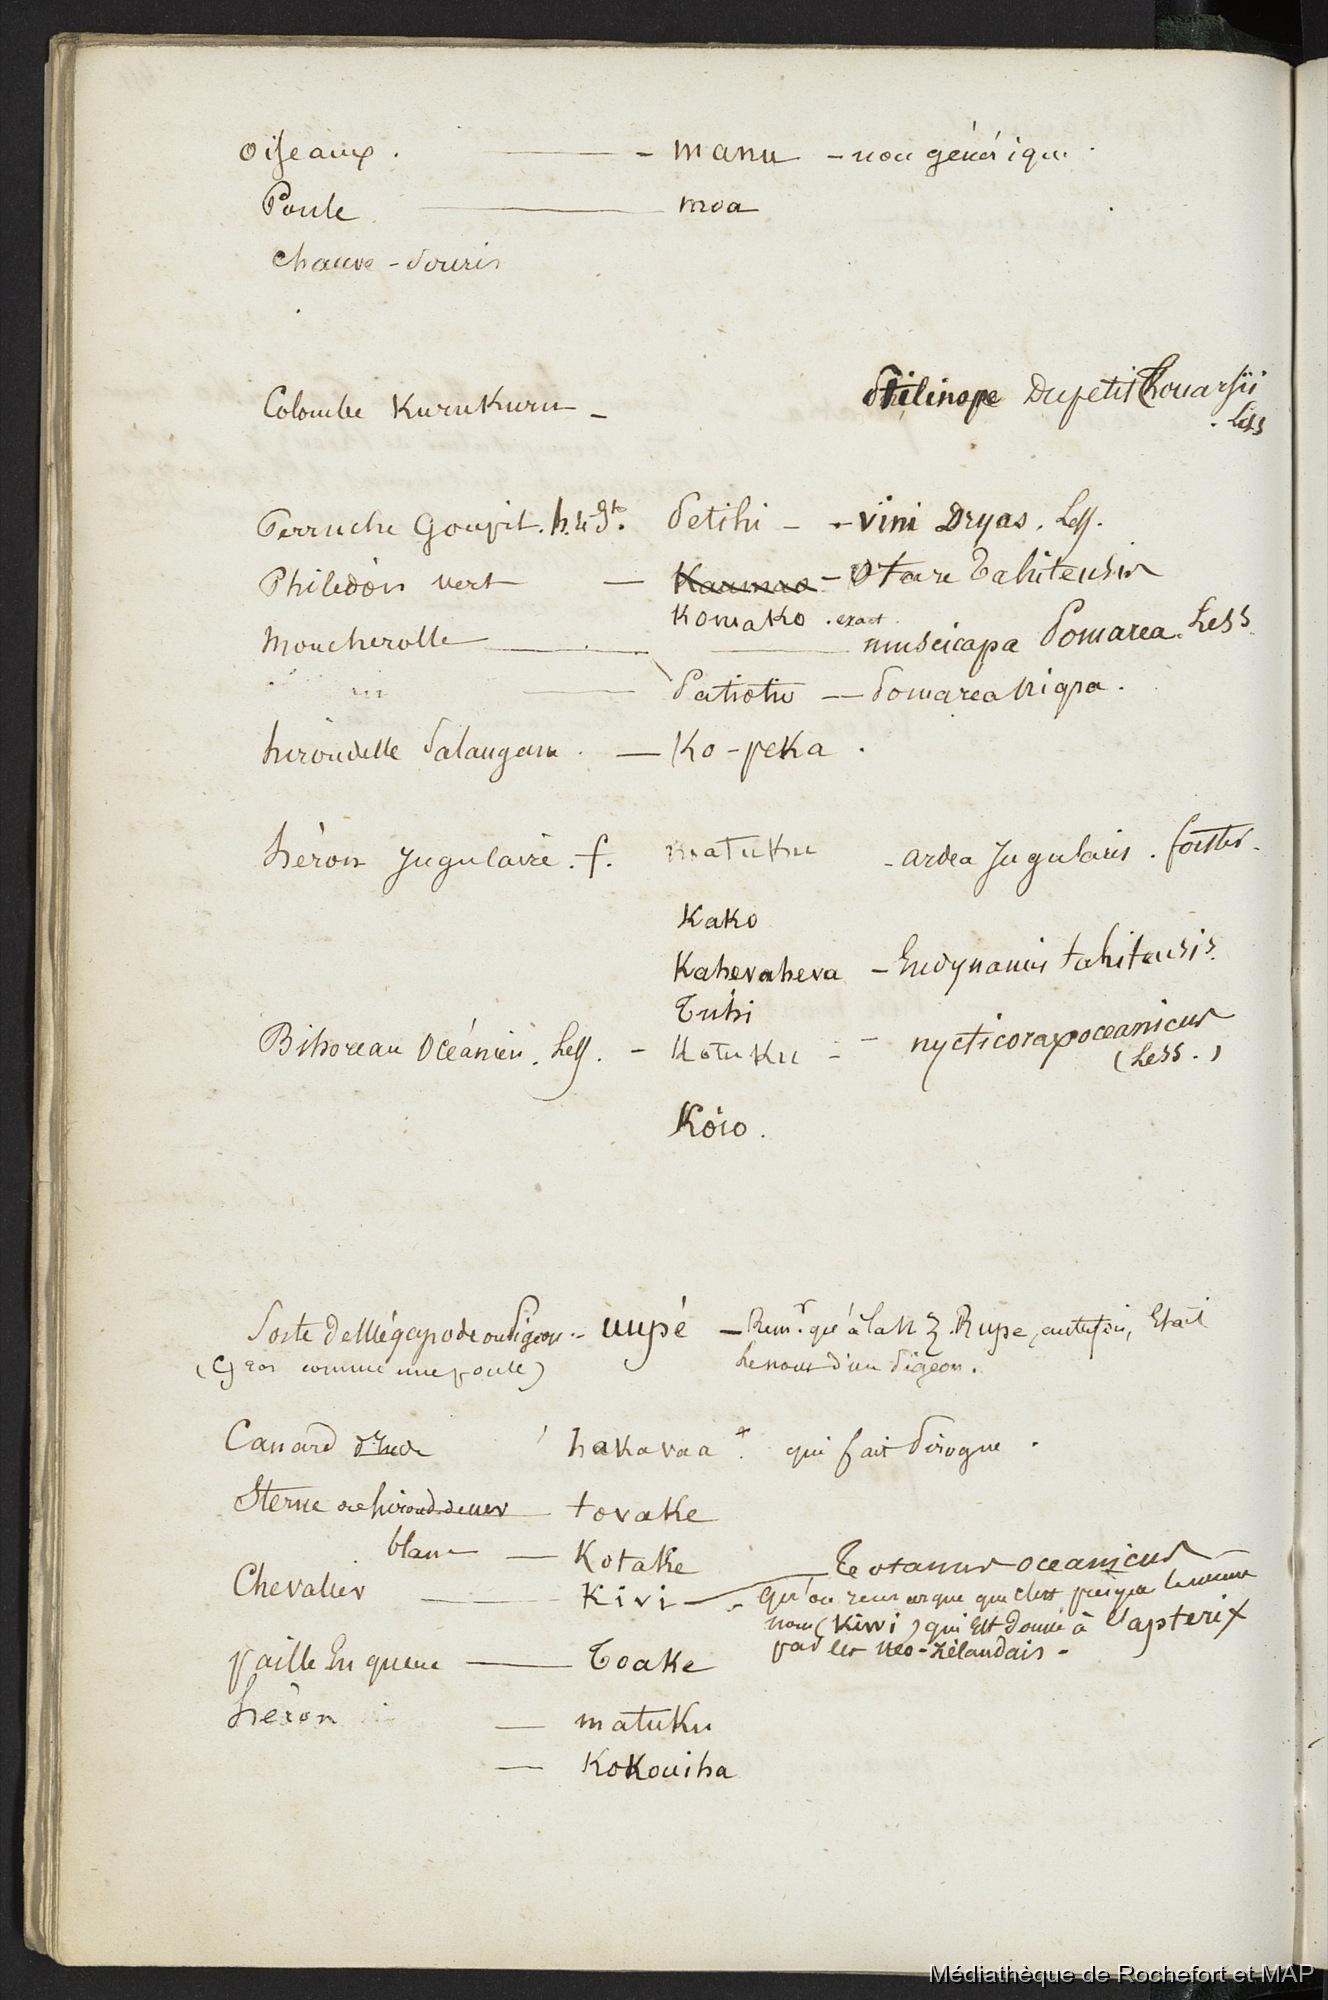 Oiseaux. — manu — nom générique.
Poule — moa
Chauve-souris
Colombe Kurukuru — Ptilinope Dupetit Thouarsii
. Less
Perruche Goupil. h. et Petihi — vini Dryas. Less.
Philedon vert — Kaumao — Otare Tahitensis
Komako . exact
Moucherolle — muscicapa Pomarea. Less.
— Patiotio — Pomarea Nigra.
hirondelle Salangane. — Ko-peka.
héron Jugulaire. f. matuku — ardea Jugularis. forster.
Kako
Kahevaheva — Eudynamis tahitensis.
Tuhi
Bihoreau Océanien. Less. — Kotuku — nycticorax oceanicus
(Less.)
Koio.
Sorte de Mégapode ou Pigeon — uupé — Remr. que à la N Z. Rupe, autrefois, Etait
(Gros comme une poule) le nom d'un Pigeon.
Canard d'Inde hakavaa + qui fait Pirogue.
Sterne ou hirond. de mer — tovake
blanc — Kotake
— Totanus oceanicus —
Chevalier — Kivi — qu'on remarque que c'est presque le même
nom (Kiwi) qui Est donné à l'apterix
par les néo-zélandais.
paille En queue — Toake
héron — matuku
— Kokouiha
Médiathèque de Rochefort et MAP